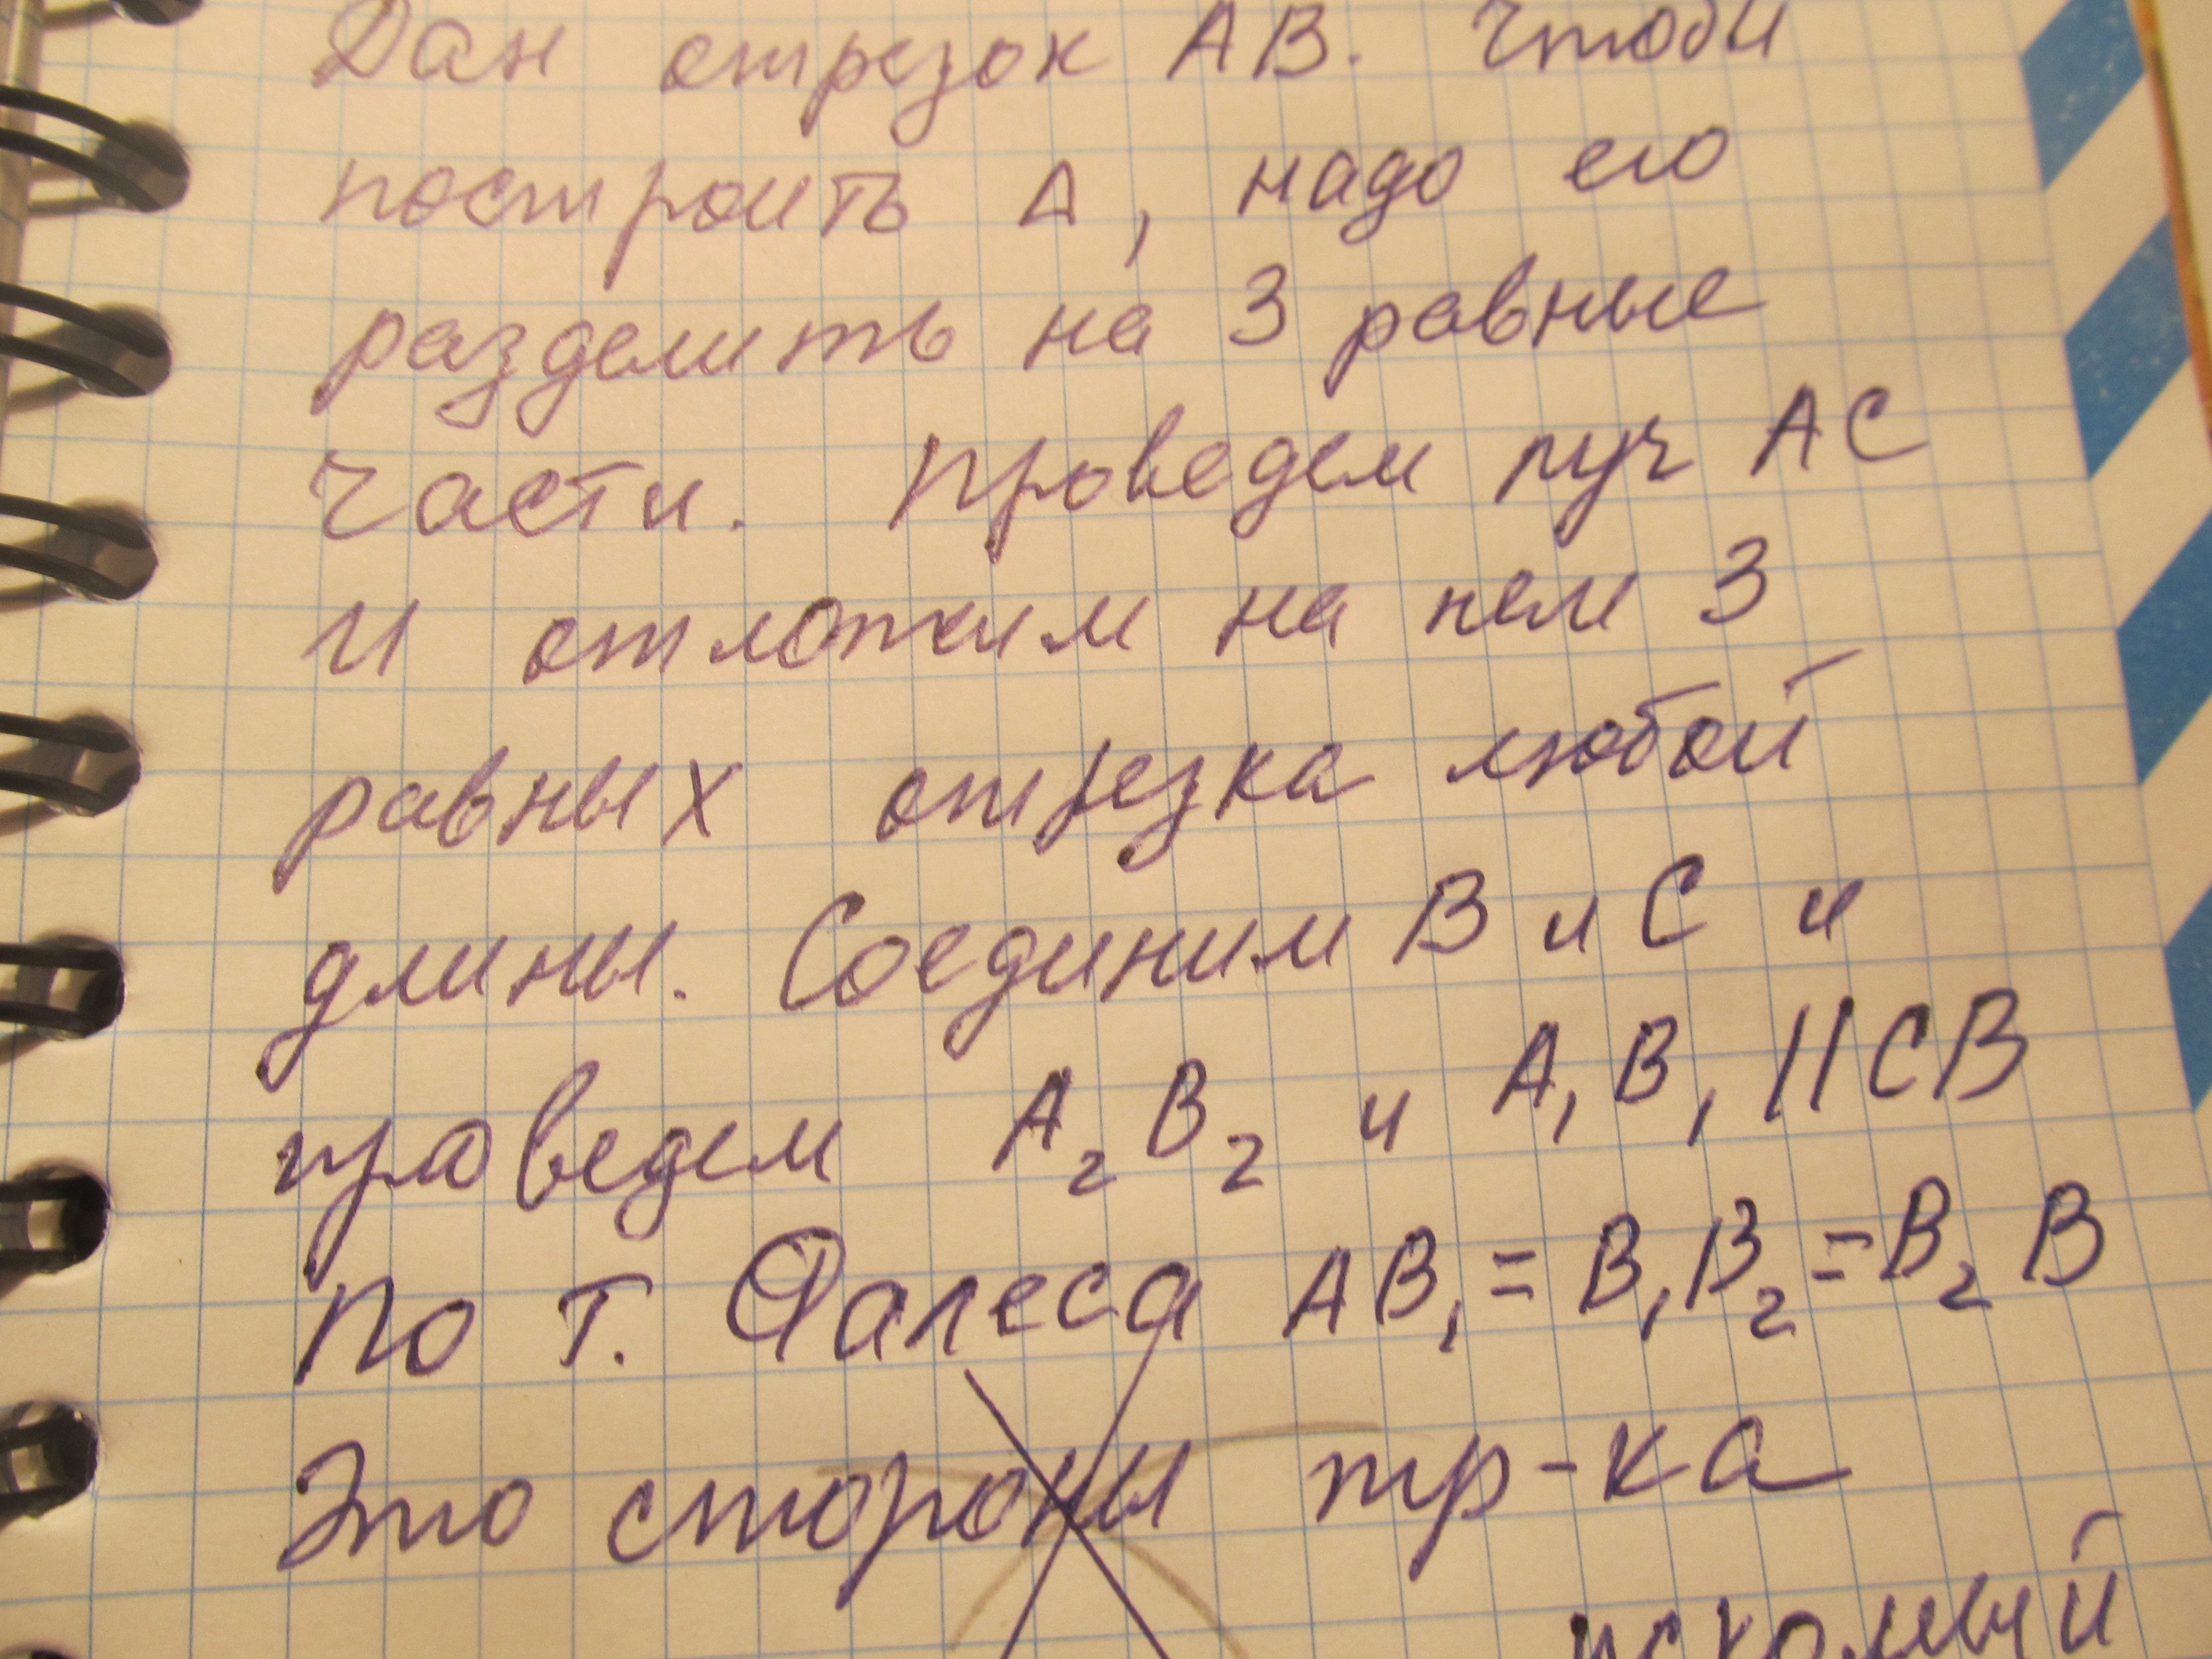 Дан отрезок АВ. Чтобы
построить Δ, надо его
разделить на 3 равные
части. Проведем луч АС
и отложим на нем 3
равных отрезка любой
длины. Соединим В и С и
проведем А₂В₂ и А₁В₁ || СВ
По т. Фалеса АВ₁ = В₁В₂ = В₂В
Это стороны тр-ка
искомый